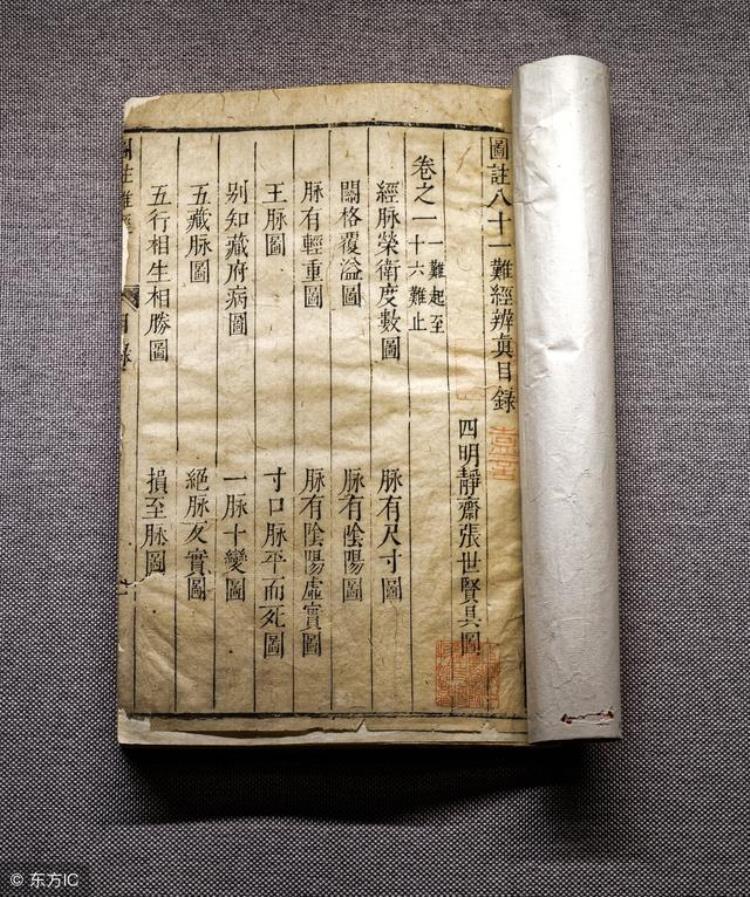 圖註八十一難經辨真目録
四明靜齋張世賢具圖
卷之一 一難起至
十六難止
經脉榮衛度數圖 脉有尺寸圖
關格覆溢圖 脉有陰陽圖
脉有輕重圖 脉有陰陽虛實圖
王脉圖 寸口脉平而死圖
别知藏府病圖 一脉十變圖
五藏脉圖 絕脉反實圖
五行相生相勝圖 損至脉圖
圖註難經 目録
© 东方IC